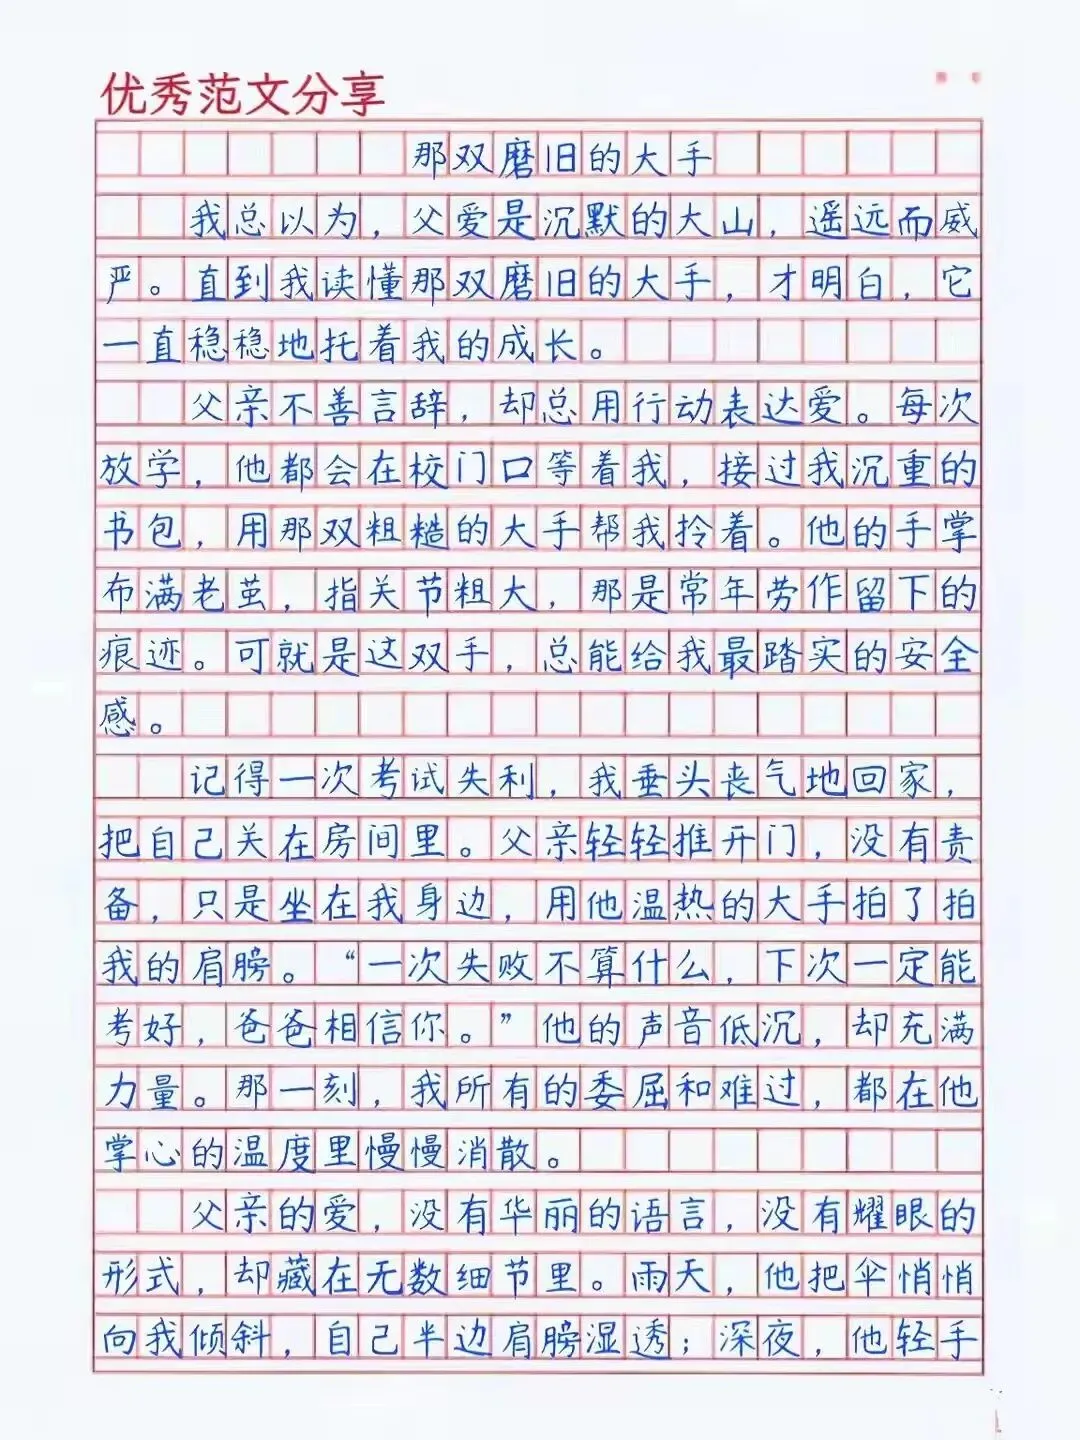 优秀范文分享
那双磨旧的大手
我总以为，父爱是沉默的大山，遥远而威
严。直到我读懂那双磨旧的大手，才明白，它
一直稳稳地托着我的成长。
父亲不善言辞，却总用行动表达爱。每次
放学，他都会在校门口等着我，接过我沉重的
书包，用那双粗糙的大手帮我拎着。他的手掌
布满老茧，指关节粗大，那是常年劳作留下的
痕迹。可就是这双手，总能给我最踏实的安全
感。
记得一次考试失利，我垂头丧气地回家，
把自己关在房间里。父亲轻轻推开门，没有责
备，只是坐在我身边，用他温热的大手拍了拍
我的肩膀。“一次失败不算什么，下次一定能
考好，爸爸相信你。”他的声音低沉，却充满
力量。那一刻，我所有的委屈和难过，都在他
掌心的温度里慢慢消散。
父亲的爱，没有华丽的语言，没有耀眼的
形式，却藏在无数细节里。雨天，他把伞悄悄
向我倾斜，自己半边肩膀湿透；深夜，他轻手